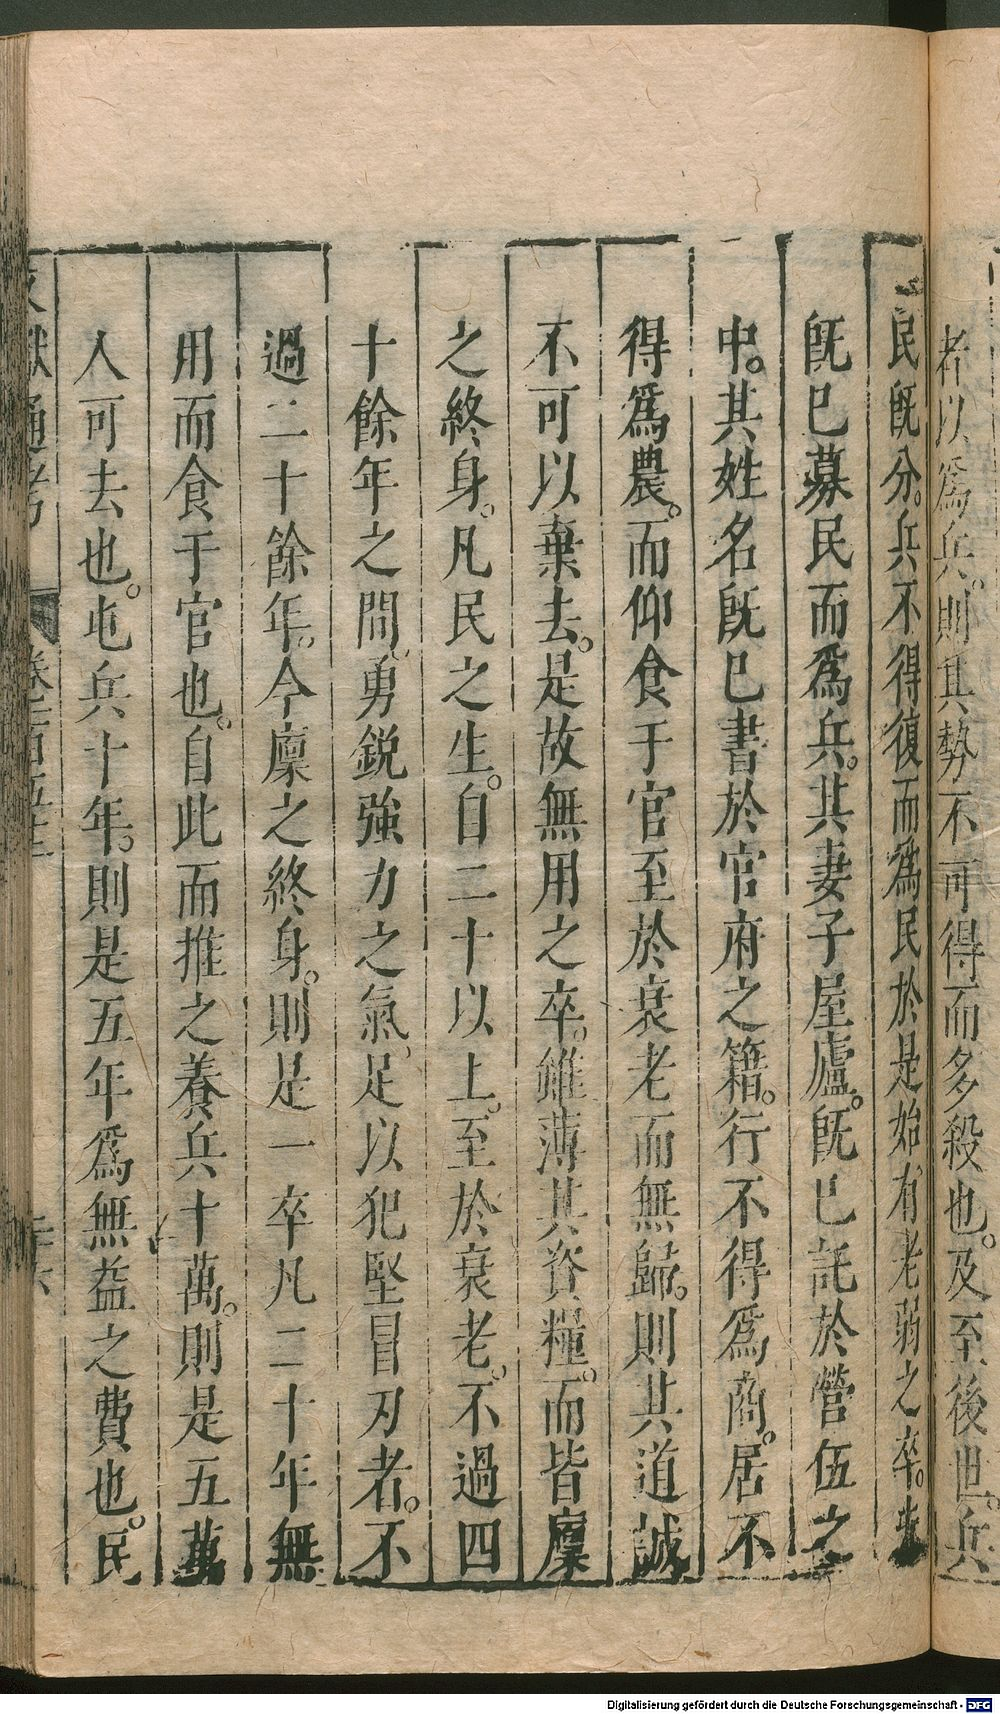 者以爲兵。則其勢不可得而多殺也。及至後世。兵
民旣分。兵不得復而爲民於是始有老弱之卒。夫
旣已募民而爲兵。其妻子屋廬。旣已託於營伍之
中。其姓名旣已書於官府之籍。行不得爲商。居不
得爲農。而仰食于官至於衰老而無歸。則其道誠
不可以棄去。是故無用之卒。雖薄其資糧。而皆廩
之終身。凡民之生。自二十以上。至於衰老。不過四
十餘年之間。勇銳強力之氣。足以犯堅冒刃者。不
過二十餘年。今廩之終身。則是一卒凡二十年無
用而食于官也。自此而推之養兵十萬。則是五萬
人可去也。屯兵十年。則是五年爲無益之費也。民
文獻通考
卷一百五十二
Digitalisierung gefördert durch die Deutsche Forschungsgemeinschaft - DFG